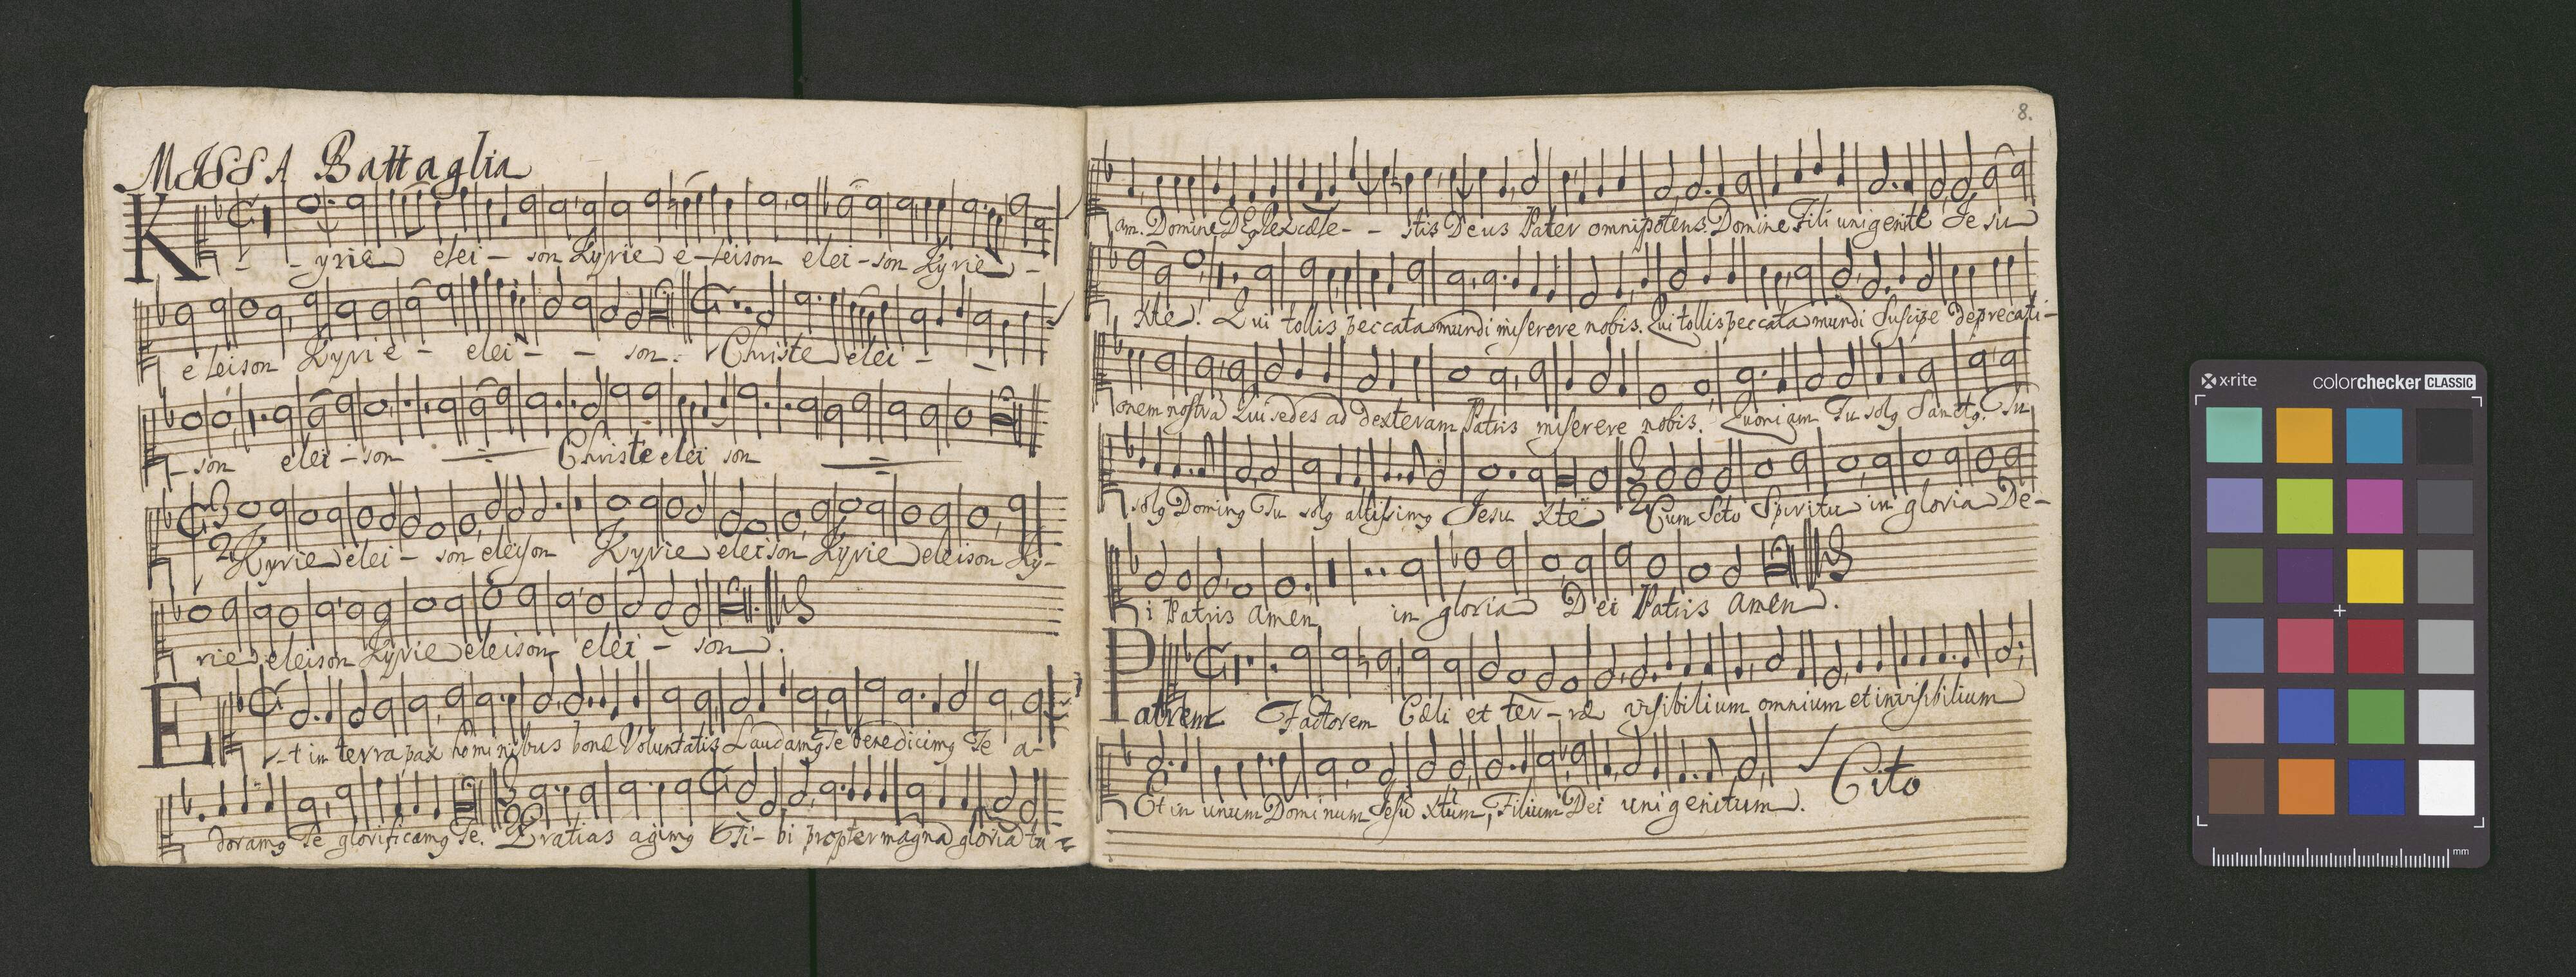 MISSA Battaglia
K - - yrie elei - son Kyrie e - leison elei - son Kyrie -
eleison Kyrie - elei - - son. Christe elei - -
- son elei - son Christe elei son
3
2
Kyrie elei - son eleison Kyrie eleison Kyrie eleison Ky-
rie eleison Kyrie eleison elei - son.
Et in terra pax hominibus bonæ Voluntatis Laudamꝰ Te benedicimꝰ Te a-
doramꝰ Te glorificamꝰ Te. Gratias agimꝰ Ti- bi propter magnā gloriā tu-
8.
am. Domine Deꝰ Rex cæle - - stis Deus Pater omnipotens. Domine Fili unigenite Jesu
Xte. Qui tollis peccata mundi miserere nobis. Qui tollis peccata mundi Suscipe deprecati-
onem nostrā Qui sedes ad dexteram Patris miserere nobis. Quoniam Tu solꝰ Sanctꝰ. Tu
solꝰ Dominꝰ Tu solꝰ altissimꝰ Jesu Xte
3
2
Cum Scto Spiritu in gloria De-
i Patris Amen in gloria Dei Patris Amen.
Patrem Factorem Cæli et ter - ræ visibilium omnium et invisibilium
Et in unum Dominum Jesū Xtum, Filium Dei unigenitum. Cito
x-rite
colorchecker CLASSIC
mm